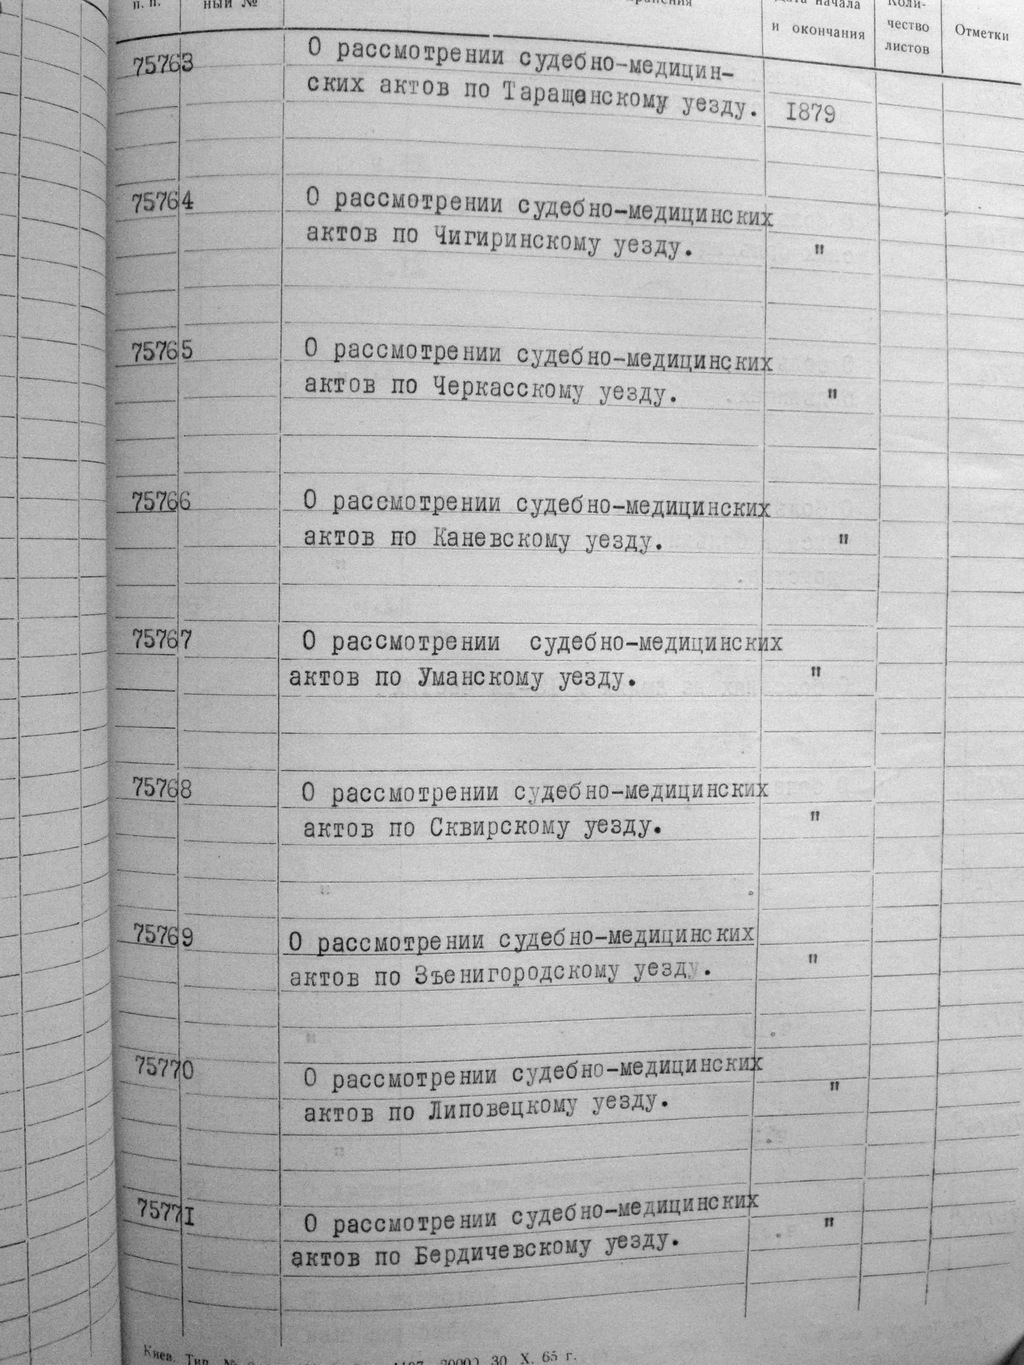 п. п.
ный №
Дата начала
и окончания
Коли-
чество
листов
Отметки
75763
О рассмотрении судебно-медицин-
ских актов по Таращанскому уезду.
I879
75764
О рассмотрении судебно-медицинских
актов по Чигиринскому уезду.
"
75765
О рассмотрении судебно-медицинских
актов по Черкасскому уезду.
"
75766
О рассмотрении судебно-медицинских
актов по Каневскому уезду.
"
75767
О рассмотрении судебно-медицинских
актов по Уманскому уезду.
"
75768
О рассмотрении судебно-медицинских
актов по Сквирскому уезду.
"
75769
О рассмотрении судебно-медицинских
актов по Зъенигородскому уезду.
"
75770
О рассмотрении судебно-медицинских
актов по Липовецкому уезду.
"
7577I
О рассмотрении судебно-медицинских
актов по Бердичевскому уезду.
"
Киев. Тип. № 30 X. 65 г.